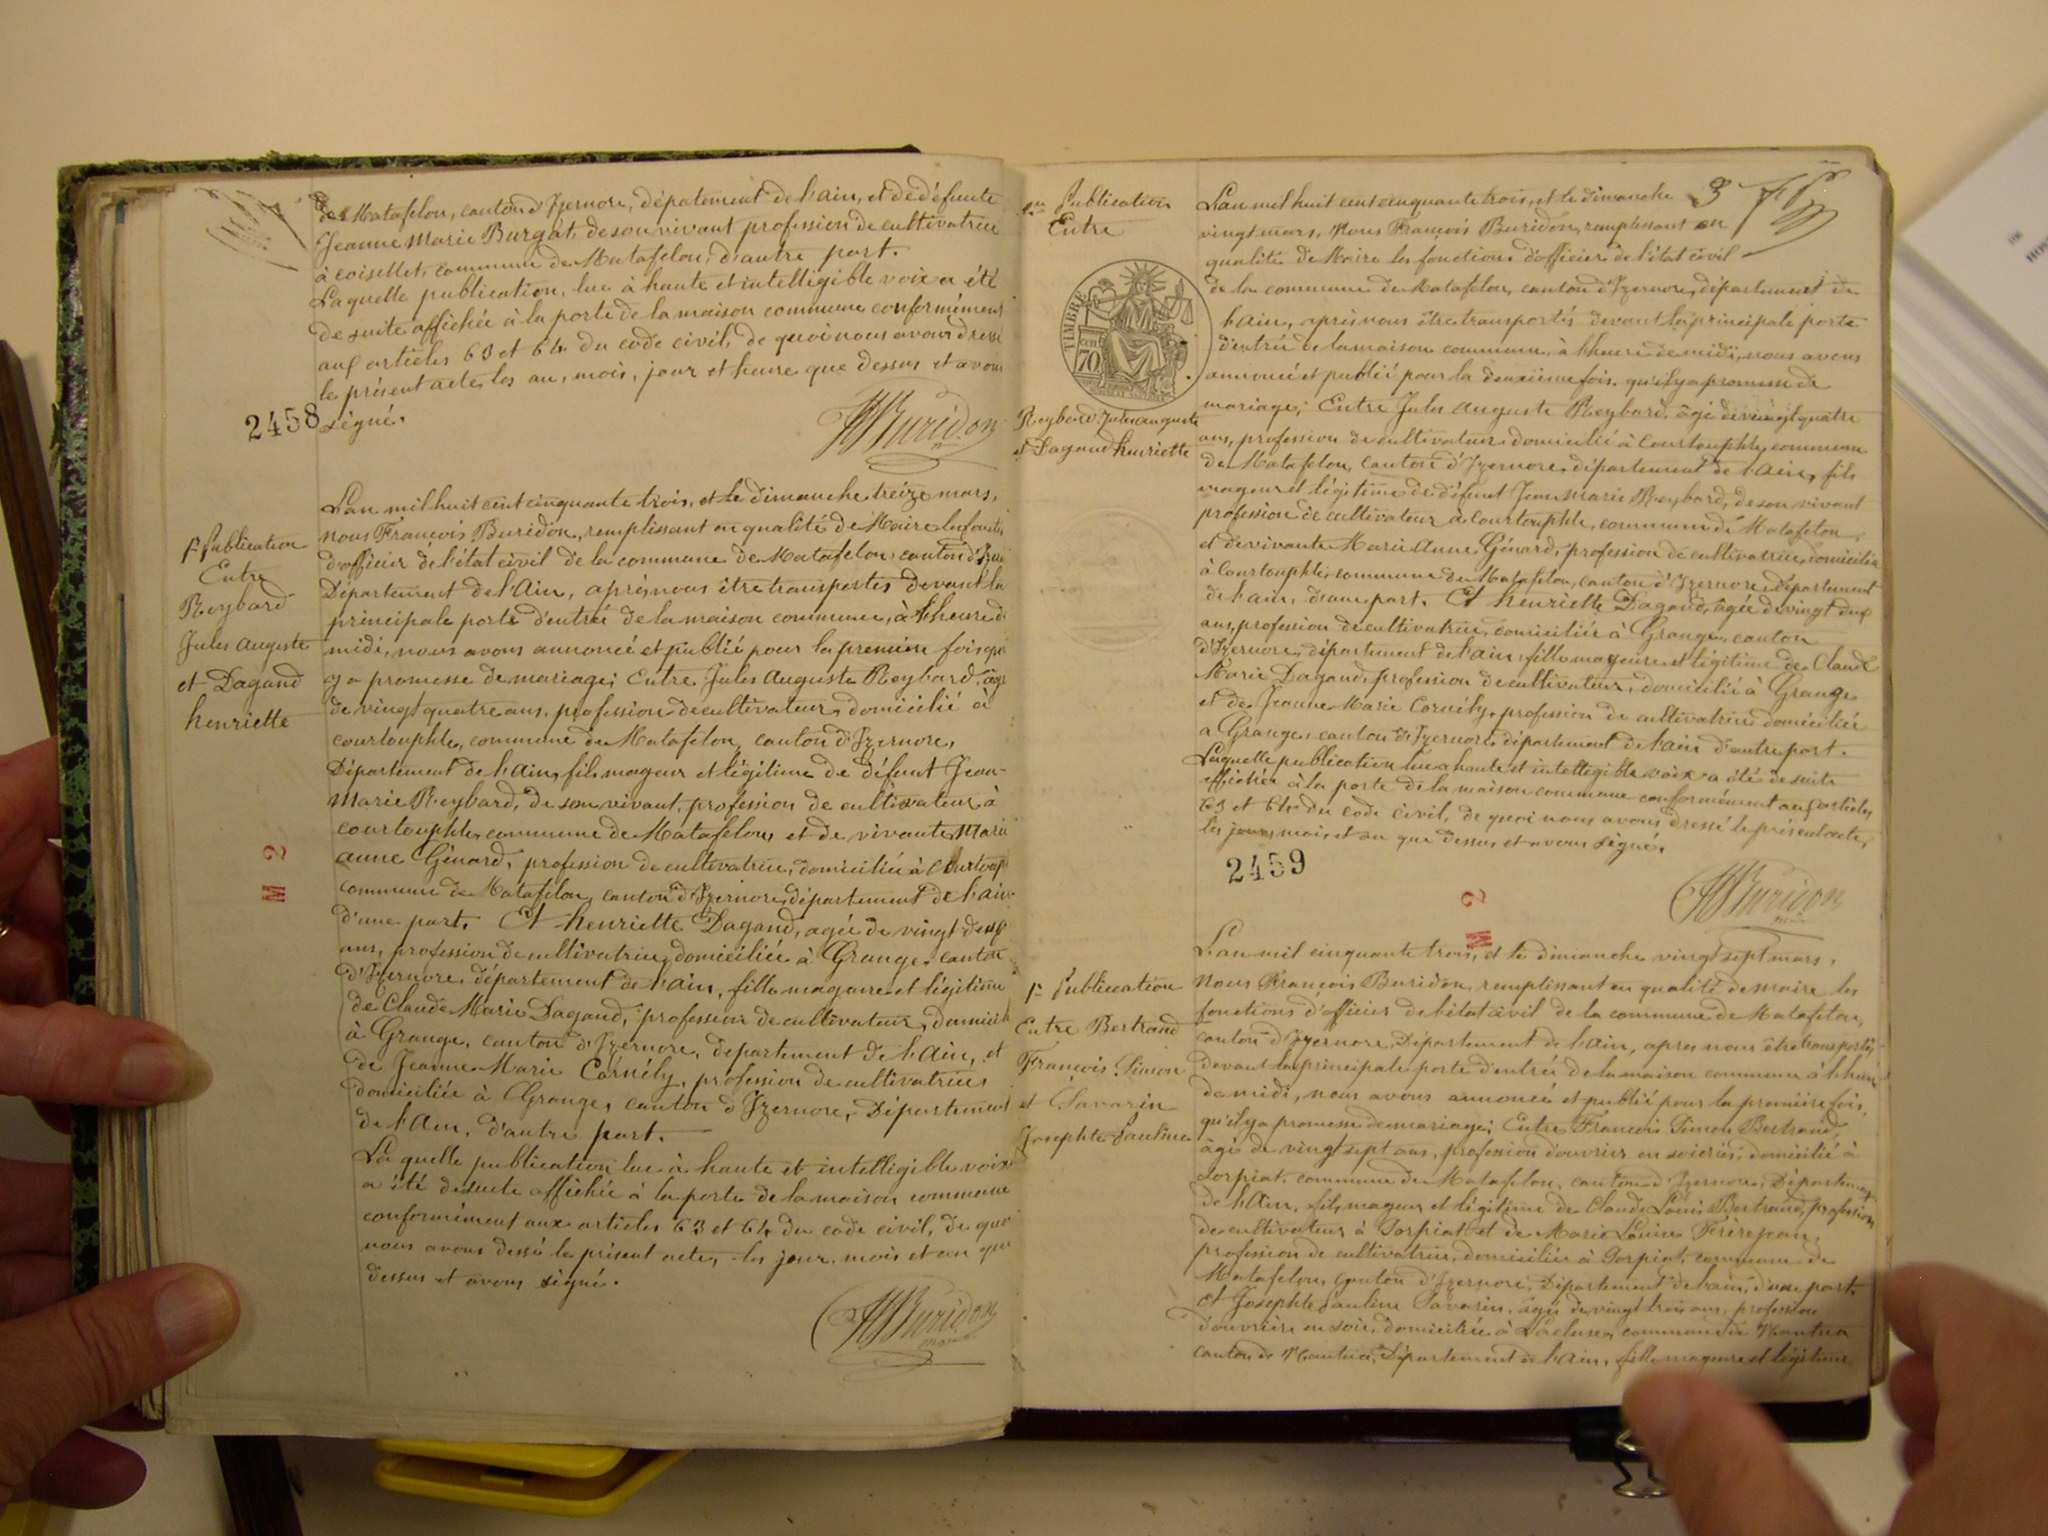 de Matafelon, canton d'Izernore, dépatement de l'ain, et de défunte
Jeanne Marie Burgat, de son vivant profession de cultivatrice
à coiselet, commune de Matafelon, d'autre part.
Laquelle publication, lue à haute et intelligible voix a été
de suite affichée à la porte de la maison commune conformément
aux articles 63 et 64 du code civil, de quoi nous avons dressé
le présent acte les an, mois, jour et heure que dessus et avons
signé.
2458
Buridon
1re Publication
Entre
Reybard
Jules Auguste
et Dagand
henriette
L'an mil huit cent cinquante trois, et le dimanche treize mars,
nous François Buridon, remplissant en qualité de Maire les
d'officier de l'état civil de la commune de Matafelon, canton
Département de l'Ain, après nous être transportés devant la
principale porte d'entrée de la maison commune, à l'heure de
midi, nous avons annoncé et publié pour la première fois
y a promesse de mariage; Entre Jules Auguste Reybard, âgé
de vingt quatre ans, profession de cultivateur, domicilié à
courtouphle, commune de Matafelon, canton d'Izernore,
Département de l'Ain, fils majeur et légitime de défunt Jean-
Marie Reybard, de son vivant, profession de cultivateur à
courtouphle, commune de Matafelon, et de vivante Marie
anne Génard, profession de cultivatrice, domiciliée à
commune de Matafelon, canton d'Izernore, département de l'ain
d'une part. Et henriette Dagand, agée de vingt deux
ans, profession de cultivatrice, domiciliée à Grange, canton
d'Izernore, département de l'ain, fille mageure et légitime
de Claude Marie Dagand, profession de cultivateur,
à Grange, canton d'Izernore, département de l'Ain, et
de Jeanne Marie Cornély, profession de cultivatrice
domiciliée à Grange, canton d'Izernore, Département
de l'Ain, d'autre part.
La quelle publication lue à haute et intelligible voix
a été desuite affichée à la porte de la maison commune
conformément aux articles 63 et 64 du code civil, de quoi
nous avons dressé le présent acte, les jour, mois et an que
dessus et avons signé.
Buridon
M 2
Publication
Entre
TIMBRE
70
Reybard Jules auguste
et Dagand henriette
3
L'an mil huit cent cinquante trois, et le dimanche
vingt mars, Nous François Buridon, remplissant en
qualité de Maire les fonctions d'officier de l'état civil
de la commune de Matafelon, canton d'Izernore, département de
l'ain, après nous être transportés devant la principale porte
d'entrée de la maison commune, à l'heure de midi, nous avons
annoncé et publié pour la deuxieme fois, qu'il y a promesse de
mariage; Entre Jules Auguste Reybard, âgé de vingt quatre
ans, profession de cultivateur domicilié à Courtouphle, commune
de Matafelon, canton d'Izernore, département de l'Ain, fils
mageur et légitime de défunt Jean Marie Reybard, de son vivant
profession de cultivateur à Courtouphle, commune de Matafelon,
et de vivante Marie Anne Génard, profession de cultivatrice, domiciliée
à Courtouphle, commune de Matafelon, canton d'Izernore, département
de l'ain, d'une part. Et henriette Dagand, âgée de vingt deux
ans, profession de cultivatrice, domiciliée à Grange, canton
d'Izernore, département de l'ain, fille mageure et légitime de Claude
Marie Dagand, profession de cultivateur, domicilié à Grange
et de Jeanne Marie Cornély, profession de cultivatrice domiciliée
a Grange, canton d'Izernore, département de l'ain d'autre part.
Laquelle publication lue a haute et intelligible voix a été de suite
affichée à la porte de la maison commune conformément aux articles
63 et 64 du code civil, de quoi nous avons dressé le présent acte,
les jour, mois, et an que dessus et avons signé.
2459
Buridon
M 2
1re Publication
Entre Bertrand
François Simon
et Savarin
Josephte Pauline
L'an mil cinquante trois, et le dimanche vingt sept mars,
Nous François Buridon, remplissant en qualité de maire les
fonctions d'officier de l'état civil de la commune de Matafelon,
canton d'Izernore, Département de l'ain, apres nous être transportés
devant la principale porte d'entrée de la maison commune à l'heure
de midi, nous avons annoncé et publié pour la première fois,
qu'il y a promesse de mariage; Entre François Simon Bertrand,
âgé de vingt sept ans, profession d'ouvrier en soieries, domicilié à
Corpiat, commune de Matafelon, canton d'Izernore, Département
de l'Ain, fils mageur et légitime de Claude Louis Bertrand, profession
de cultivateur à Corpiat et de Marie Louise Frèrejean,
profession de cultivatrice, domiciliée à Corpiat, commune de
Matafelon, canton d'Izernore, Département de l'ain, d'une part.
Et Josephte Pauline Savarin, agée de vingt trois ans, profession
d'ouvrière en soie, domiciliée à Lacluse, commune de Nantua
canton de Nantua, Département de l'Ain, fille mageure et légitime